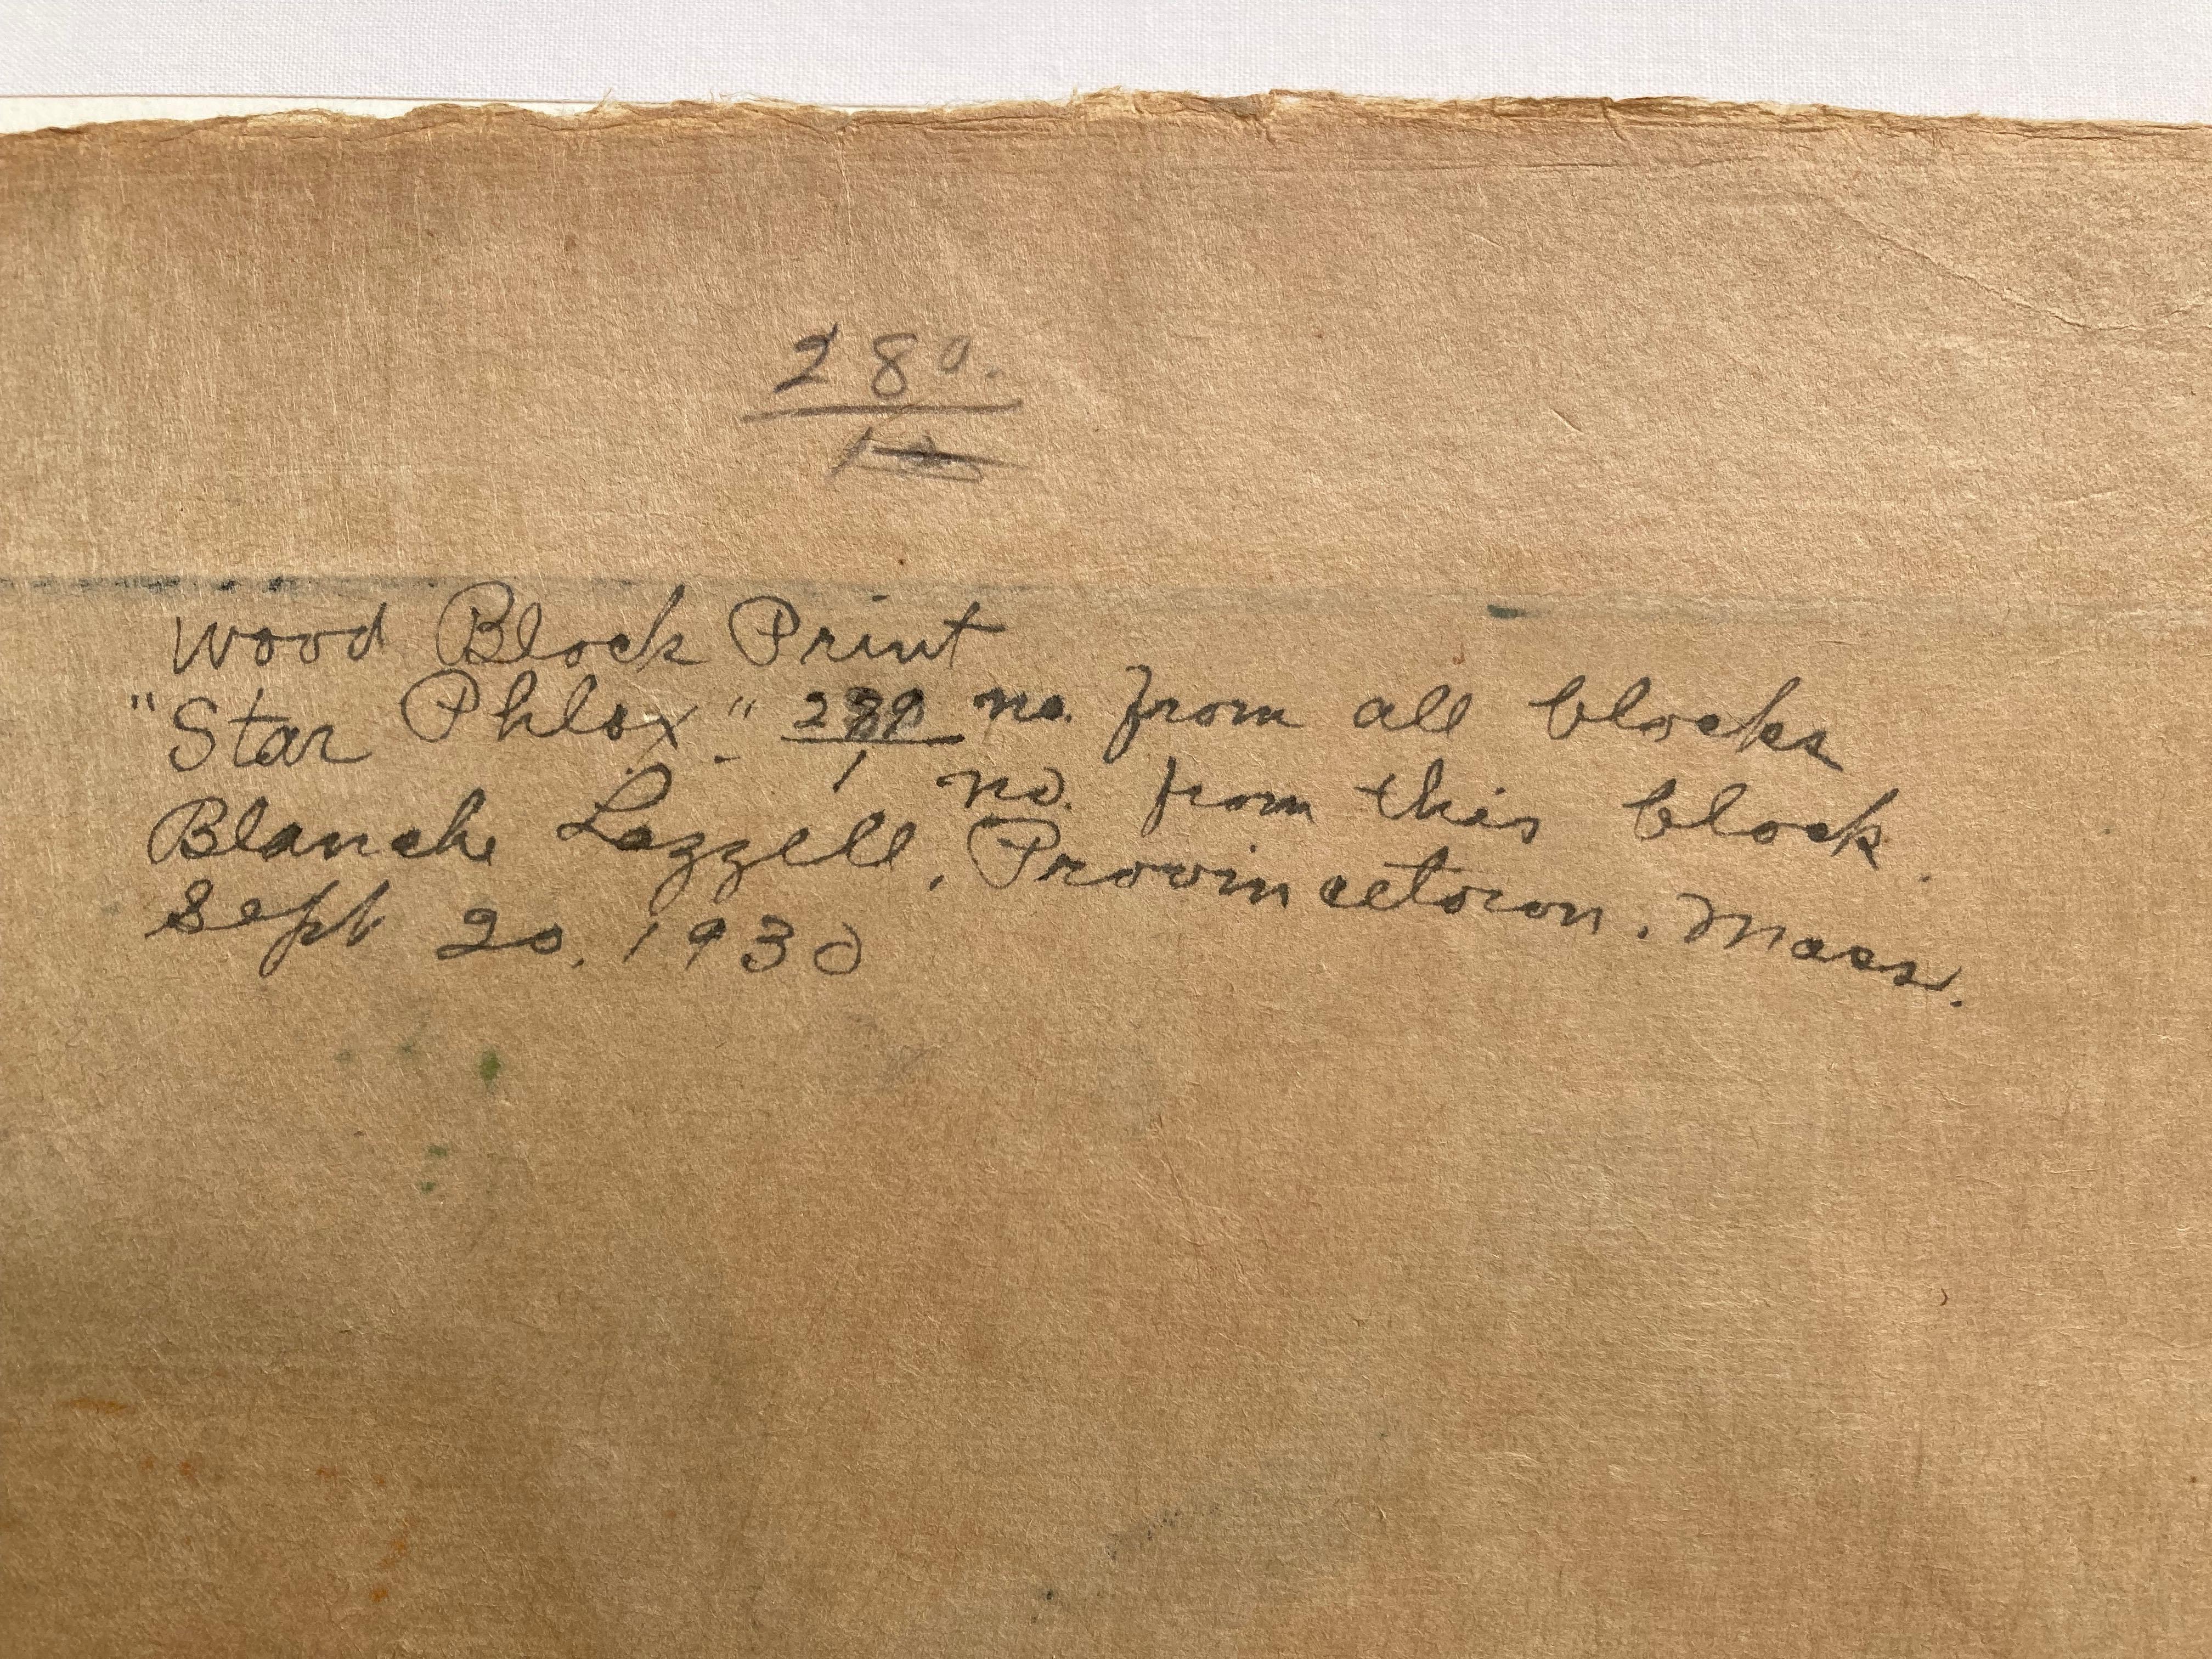 280.
Wood Block Print
"Star Phlox". no. from all blocks
1 no. from this block.
Blanche Lazzell, Provincetown. Mass.
Sept 20. 1930